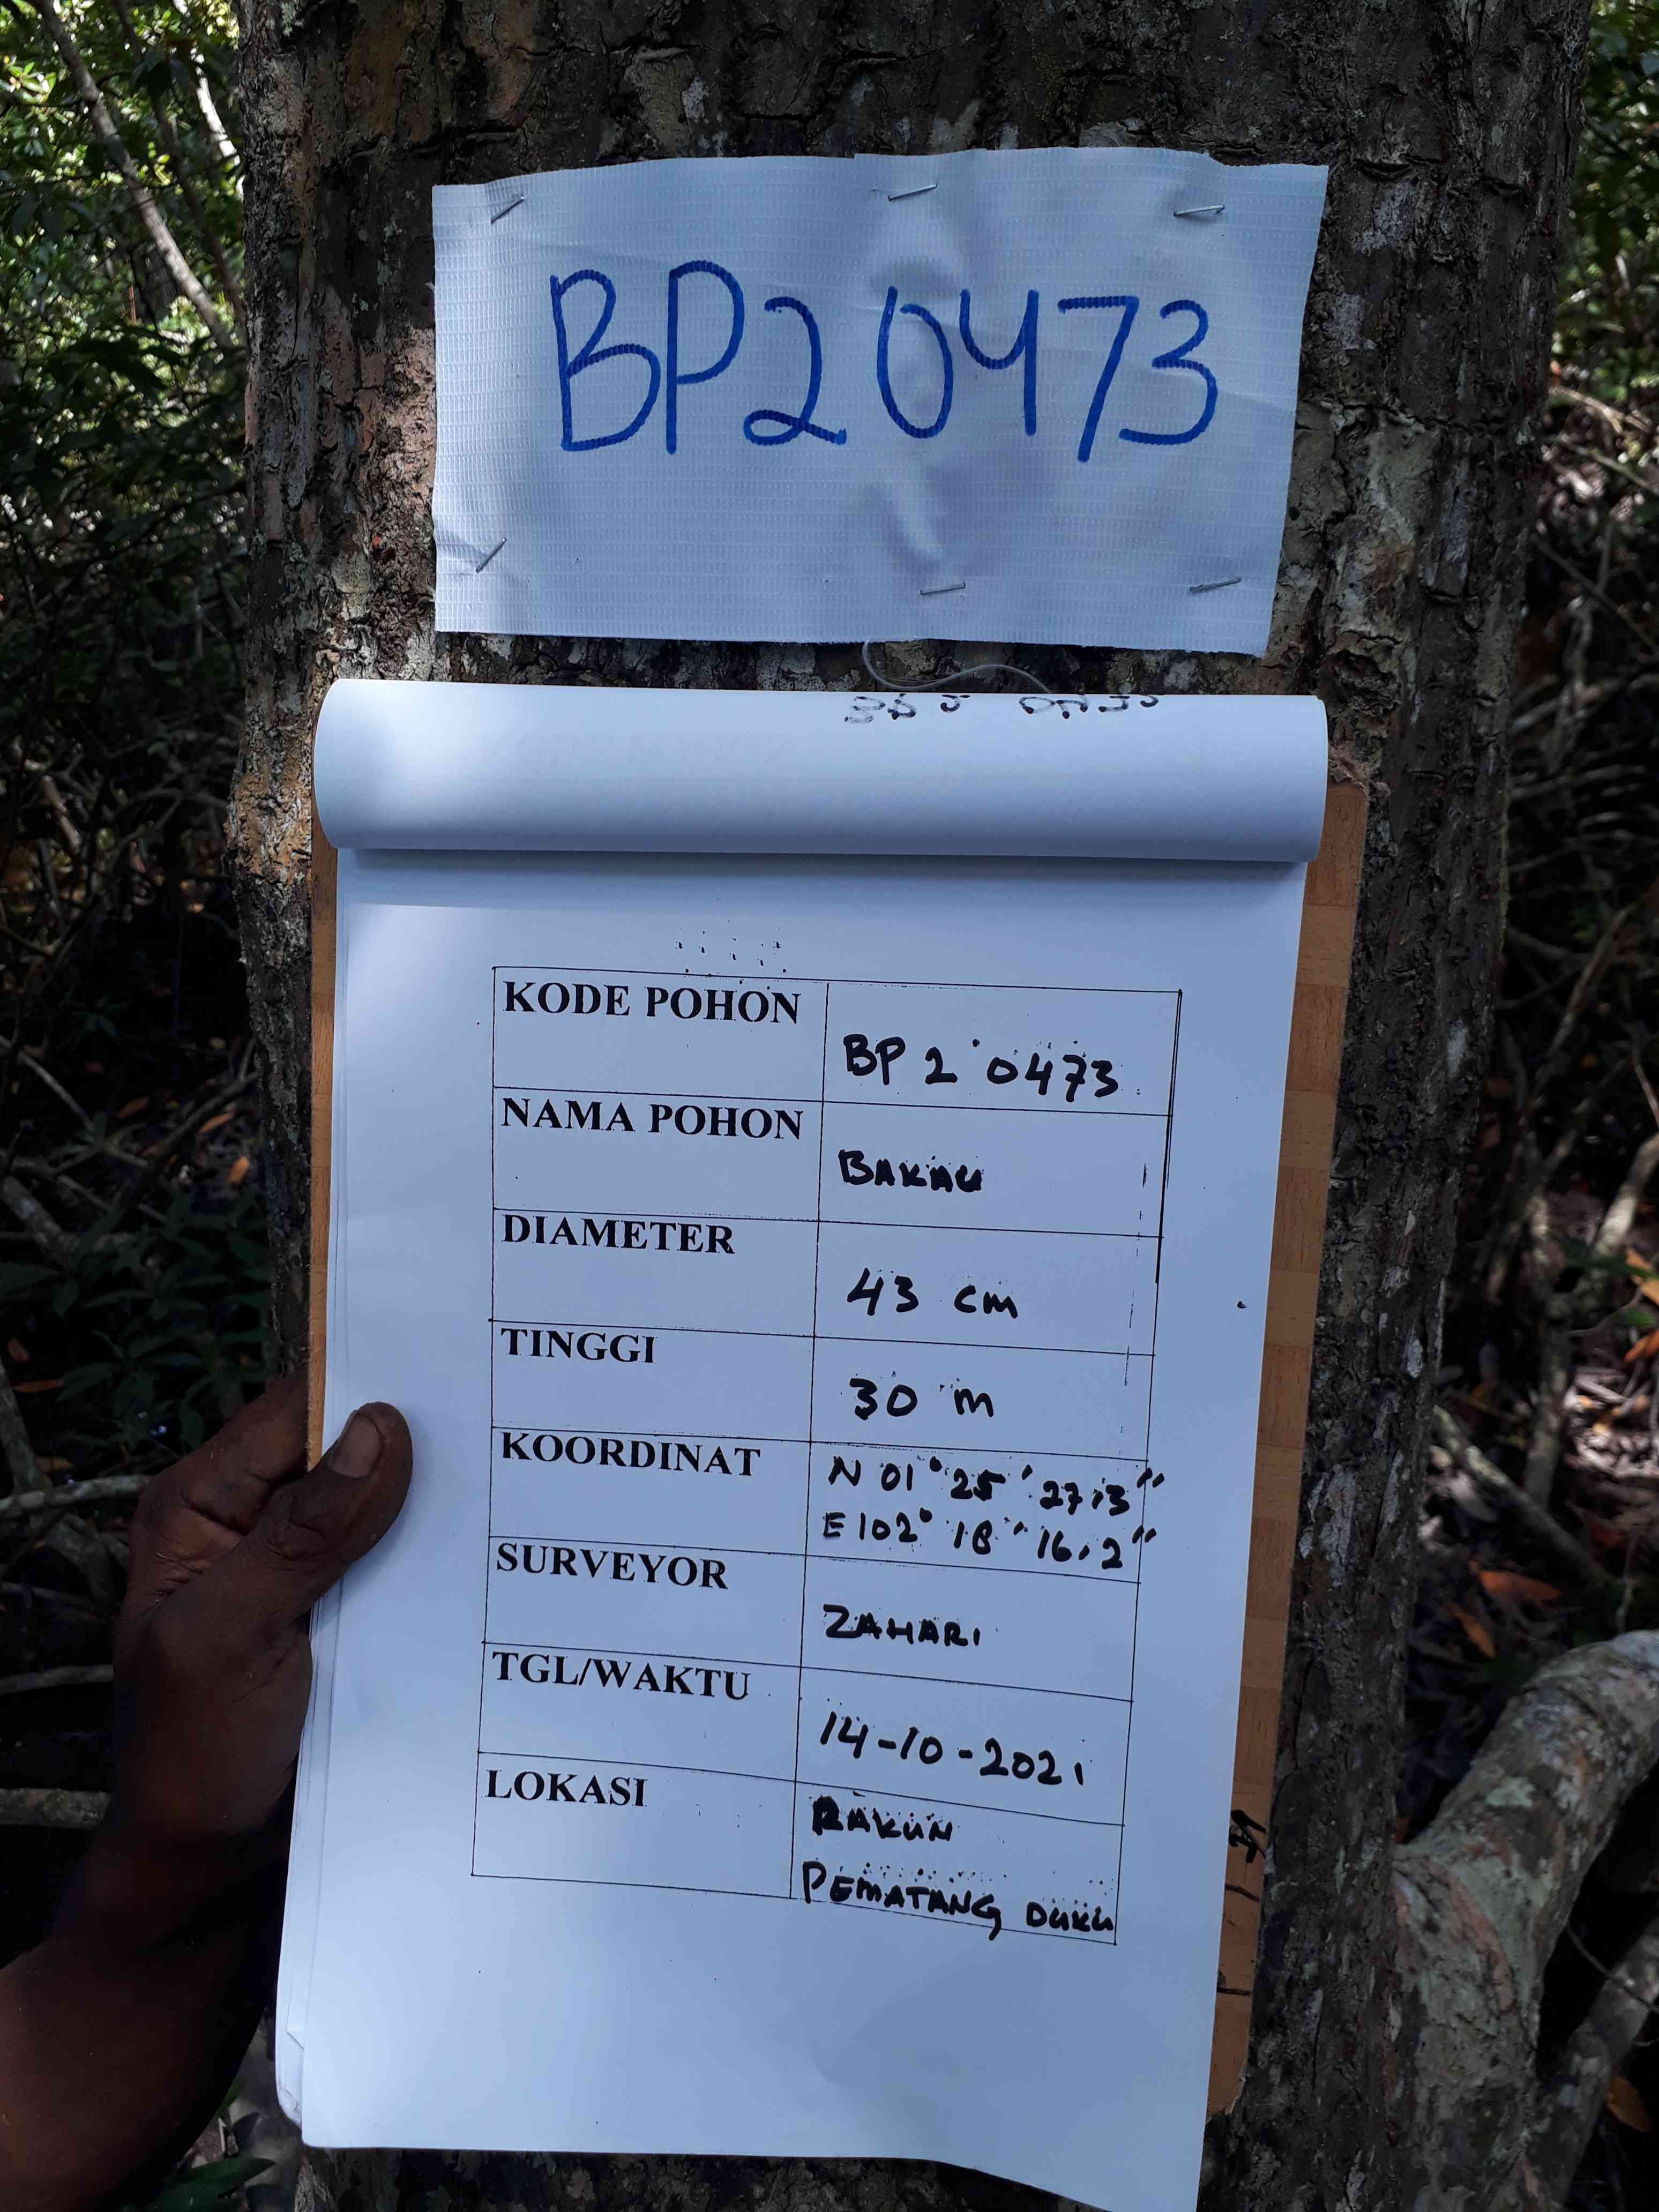 BP20473
KODE POHON
BP 2 0473
NAMA POHON
BAKAU
DIAMETER
43 cm
TINGGI
30 m
KOORDINAT
N 01° 25' 27,3"
E 102° 18' 16,2"
SURVEYOR
ZAHARI
TGL/WAKTU
14-10-2021
LOKASI
RAKUN
PEMATANG DUKU